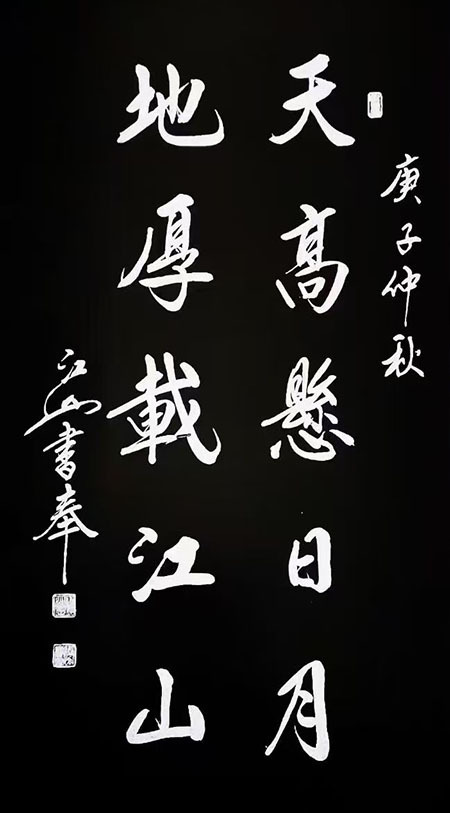 庚子仲秋
天高懸日月
地厚載江山
江山書奉